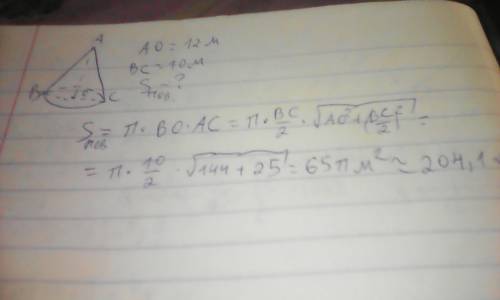 A
AO = 12 м
BC = 10 м
B C
S пов. - ?
S пов. = П · BO · AC = П · BC/2 · √(AO² + (BC/2)²) =
= П · 10/2 · √(144 + 25) = 65 П м² ≈ 204,1